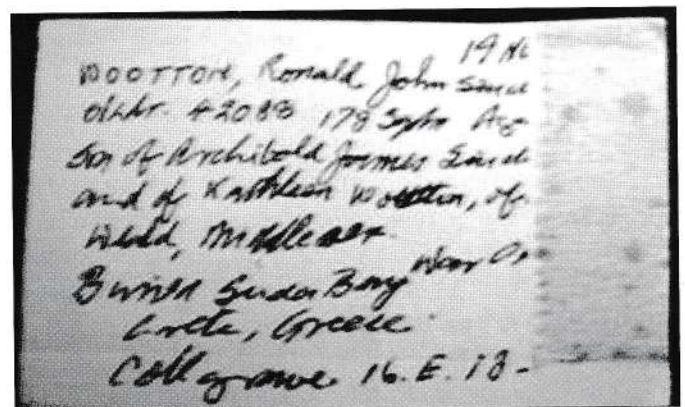 19 No
WOOTTON, Ronald John Sincl
42088 178 Sqdn Age
Son of Archibald James Sincl
and of Kathleen Wootton, of
Weald, Middlesex.
Buried Suda Bay War
Crete, Greece.
Coll grave 16. E. 18-